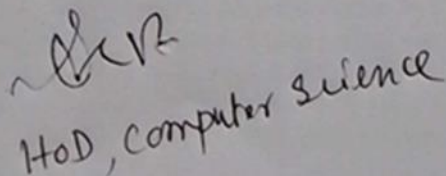 HOD, Computer Science